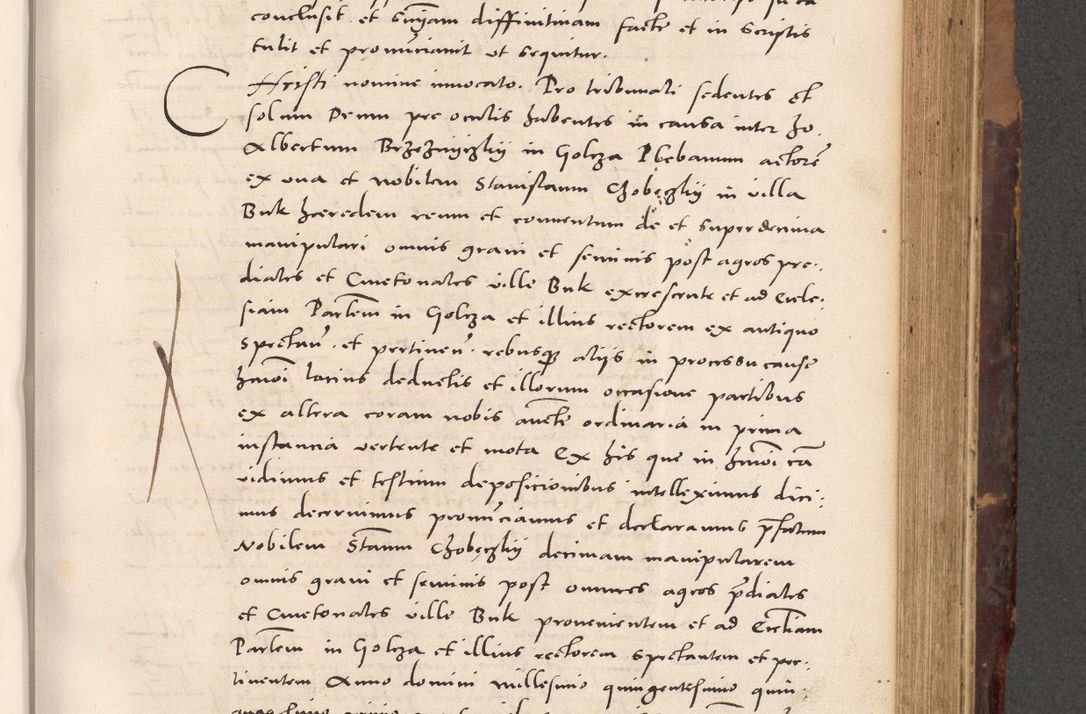 conclusit et sn̄iam diffinitivam facte et in scriptis
tulit et pronūciavit ut sequitur.
Christi nomine invocato. Pro tribunali sedentes et
solum Deum pre oculis habentes in causa inter ho.
Albertum Brzeznyczky in Golcza Plebanum actorē
ex una et nobilem Stanislaum Chobeczky in villa
Buk heredem reum et conventum de et super decima
manipulari omnis grani et seminis post agros pre:
diales et Cmetonales ville Buk excrescente et ad Eccle:
siam Parlem in Golcza et illius rectorem ex antiquo
spectan̄. et pertinen̄. rebusque aliis in processu cause
hmōi latius deductis et illorum occasione partibus
ex altera coram nobis aucte ordinaria in prima
instancia vertente et mota Ex his que in hmōi cā
vidimus et testium deposicionibus intelleximus dici:
mus decernimus pronūciamus et declaramus p̄fatum
Nobilem Stanum Chobeczky decimam manipularem
omnis grani et seminis post omnes agros p̄diales
et Cmetonales ville Buk provenientem et ad Eccliam
Parlem in Golcza et illius rectorem spectantem et per:
tinentem Anno domini millesimo quingentesimo quin: